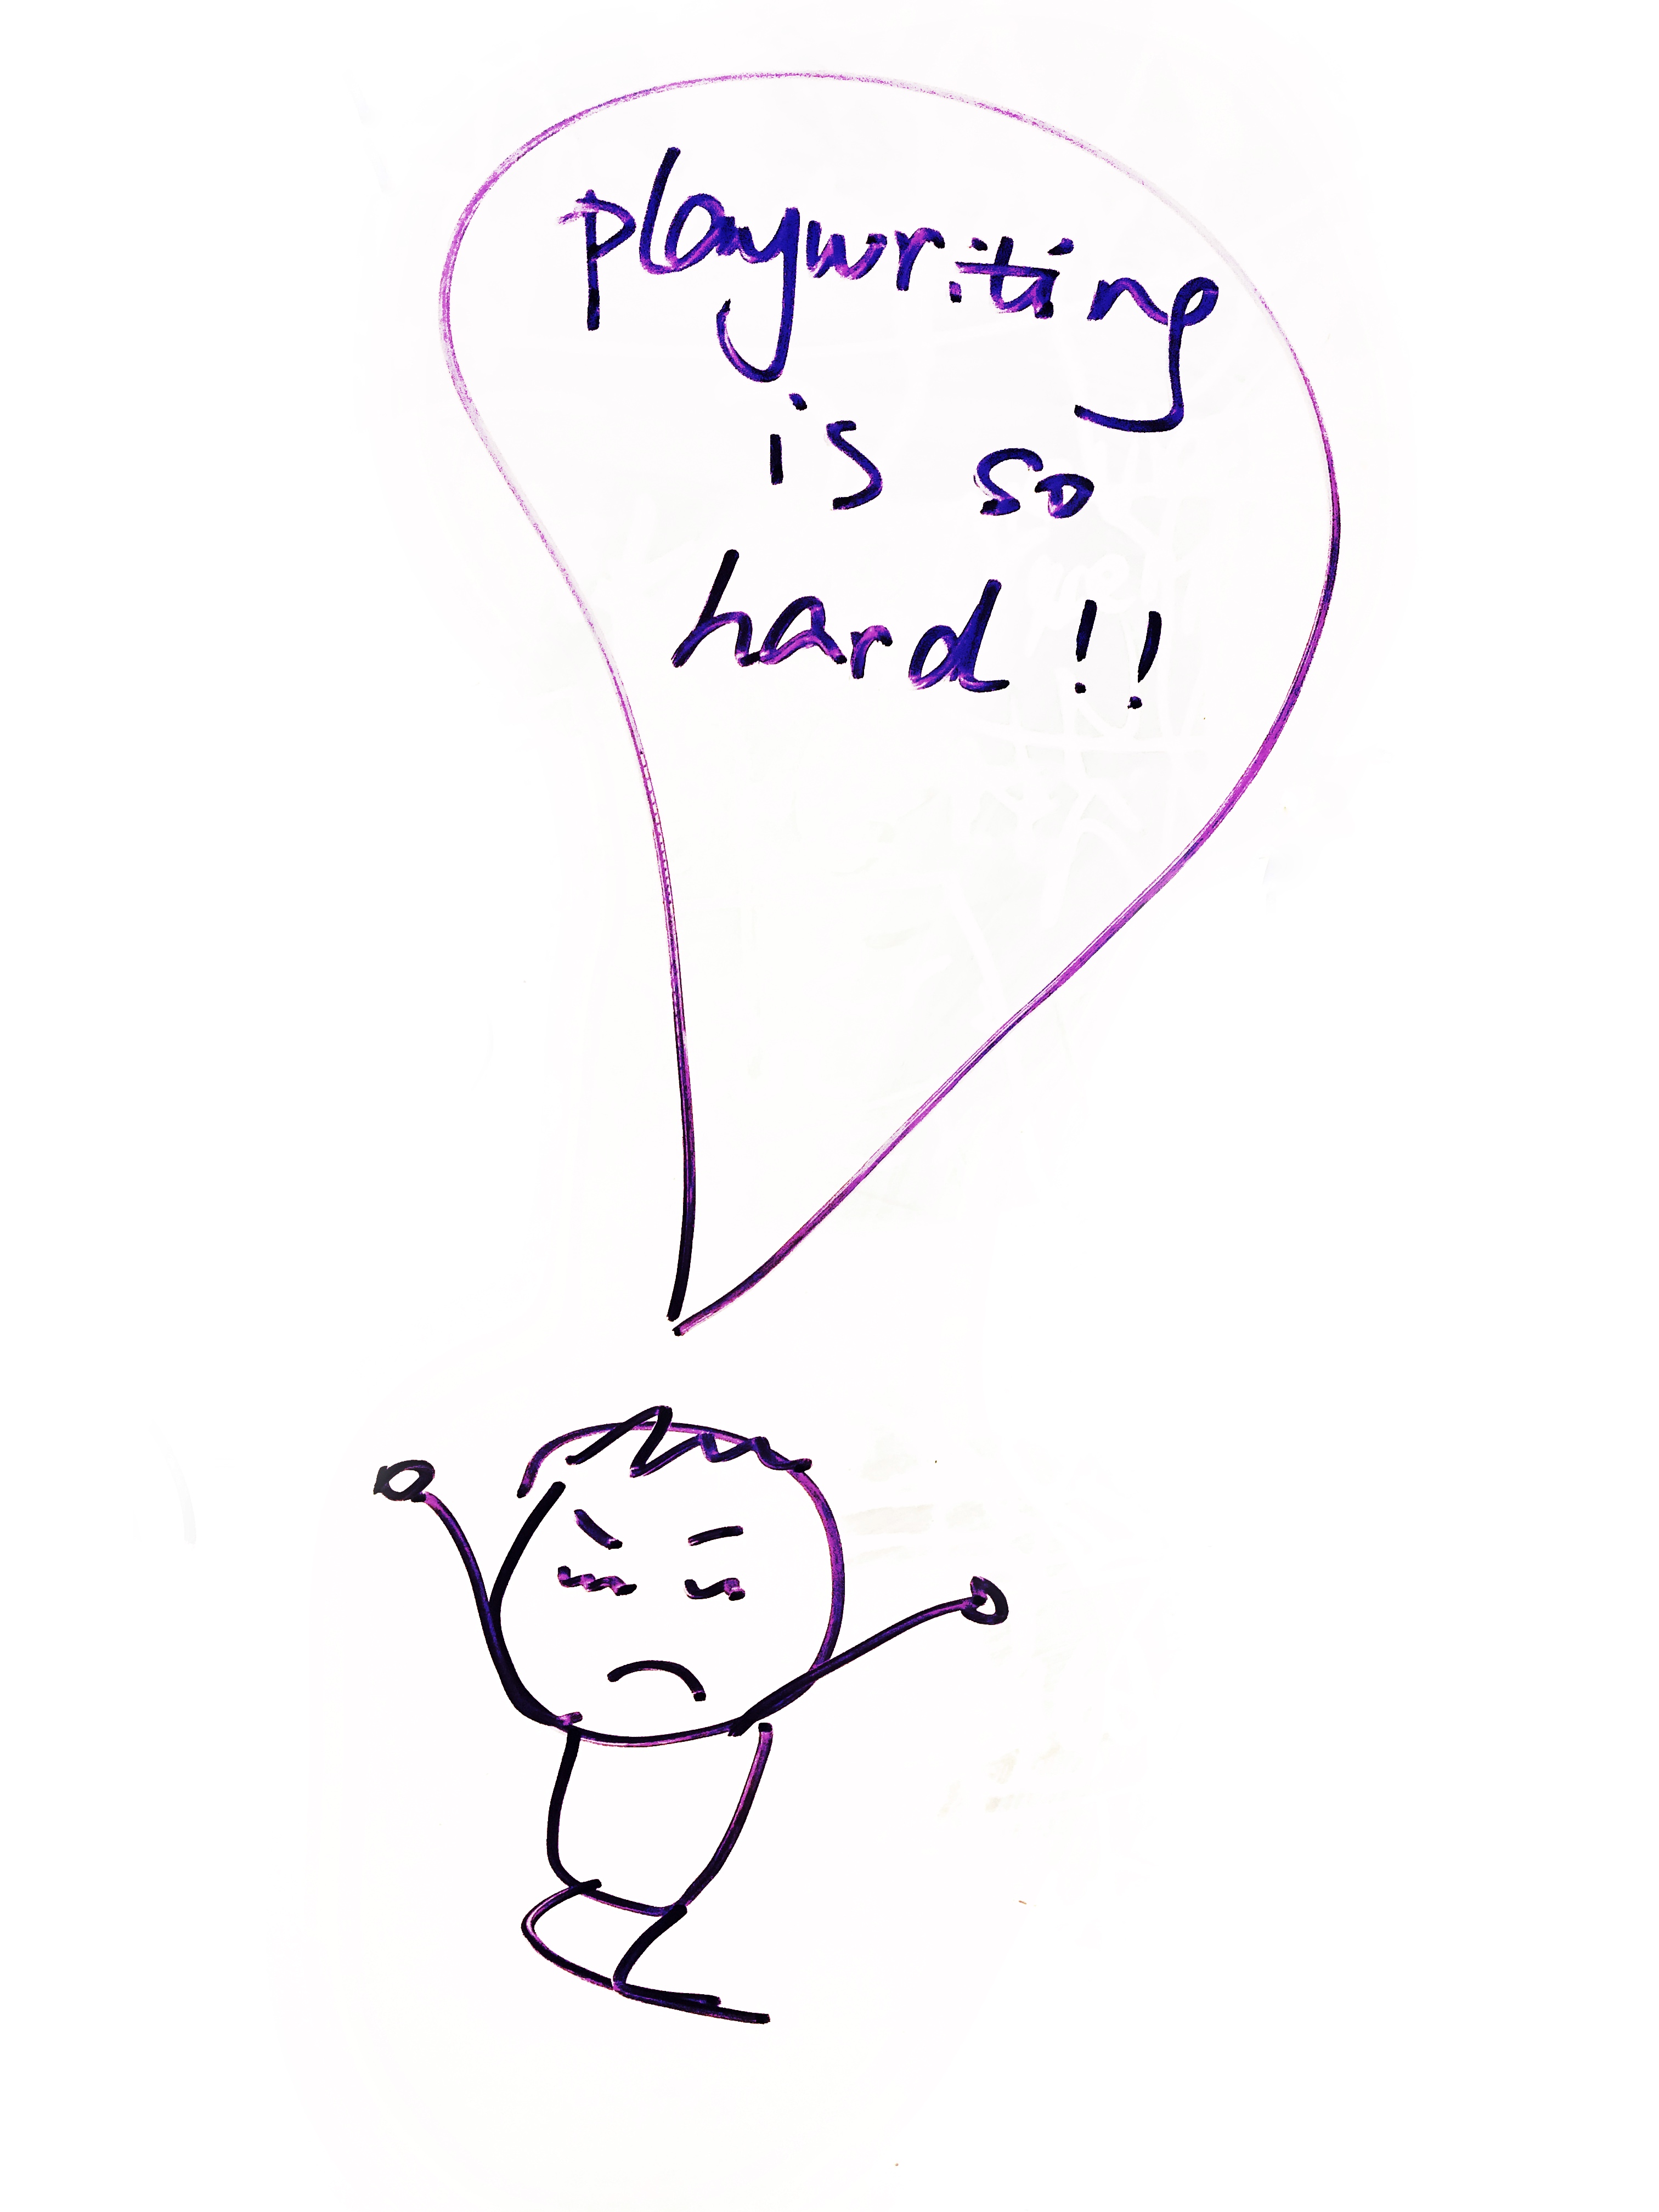 playwriting
is so
hard!!